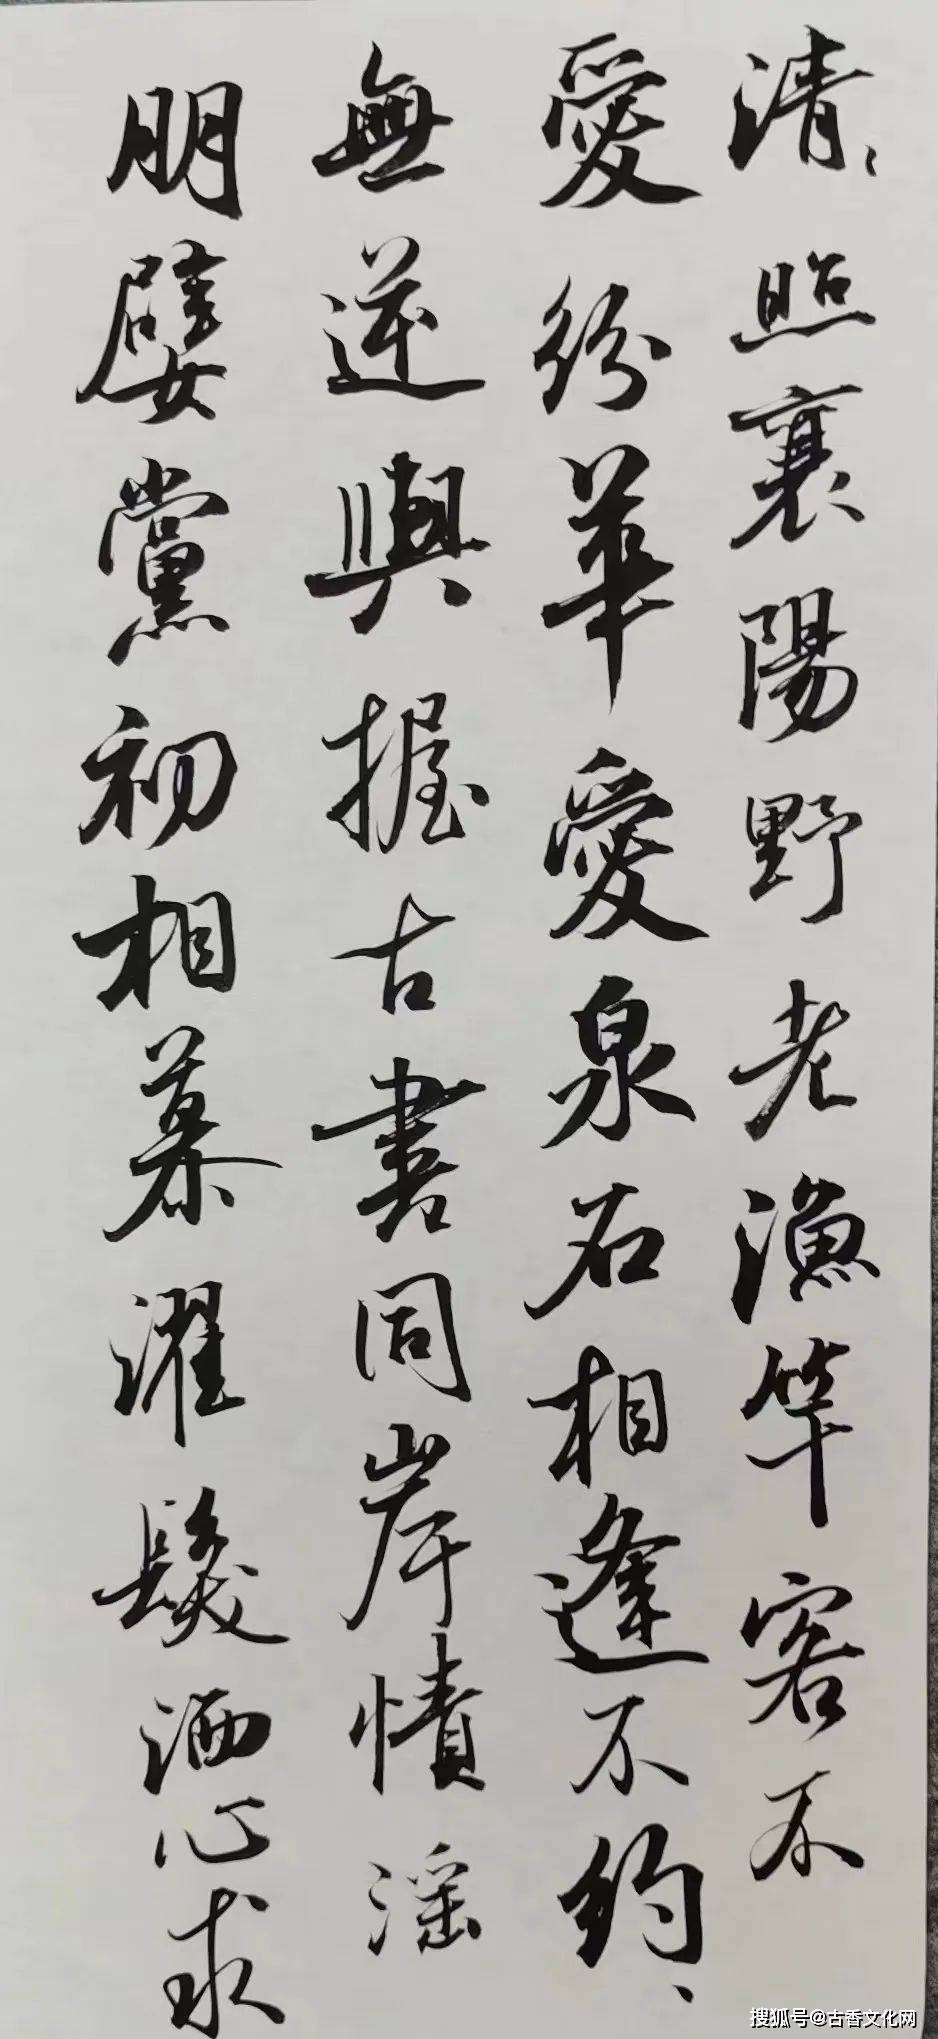 清〻照襄陽野老漁竿客不
愛紛華愛泉石相逢不約〻
無逆與握古書同岸幘淫
朋嬖黨初相慕濯髮洒心求
搜狐号@古香文化网